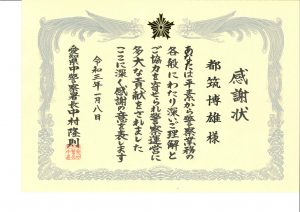 感謝状
都筑博雄様
あなたは平素から警察業務の
各般にわたり深いご理解と
ご協力を寄せられ警察運営に
多大な貢献をされました
ここに深く感謝の意を表します
令和三年一月八日
愛知県中警察署長中村隆則